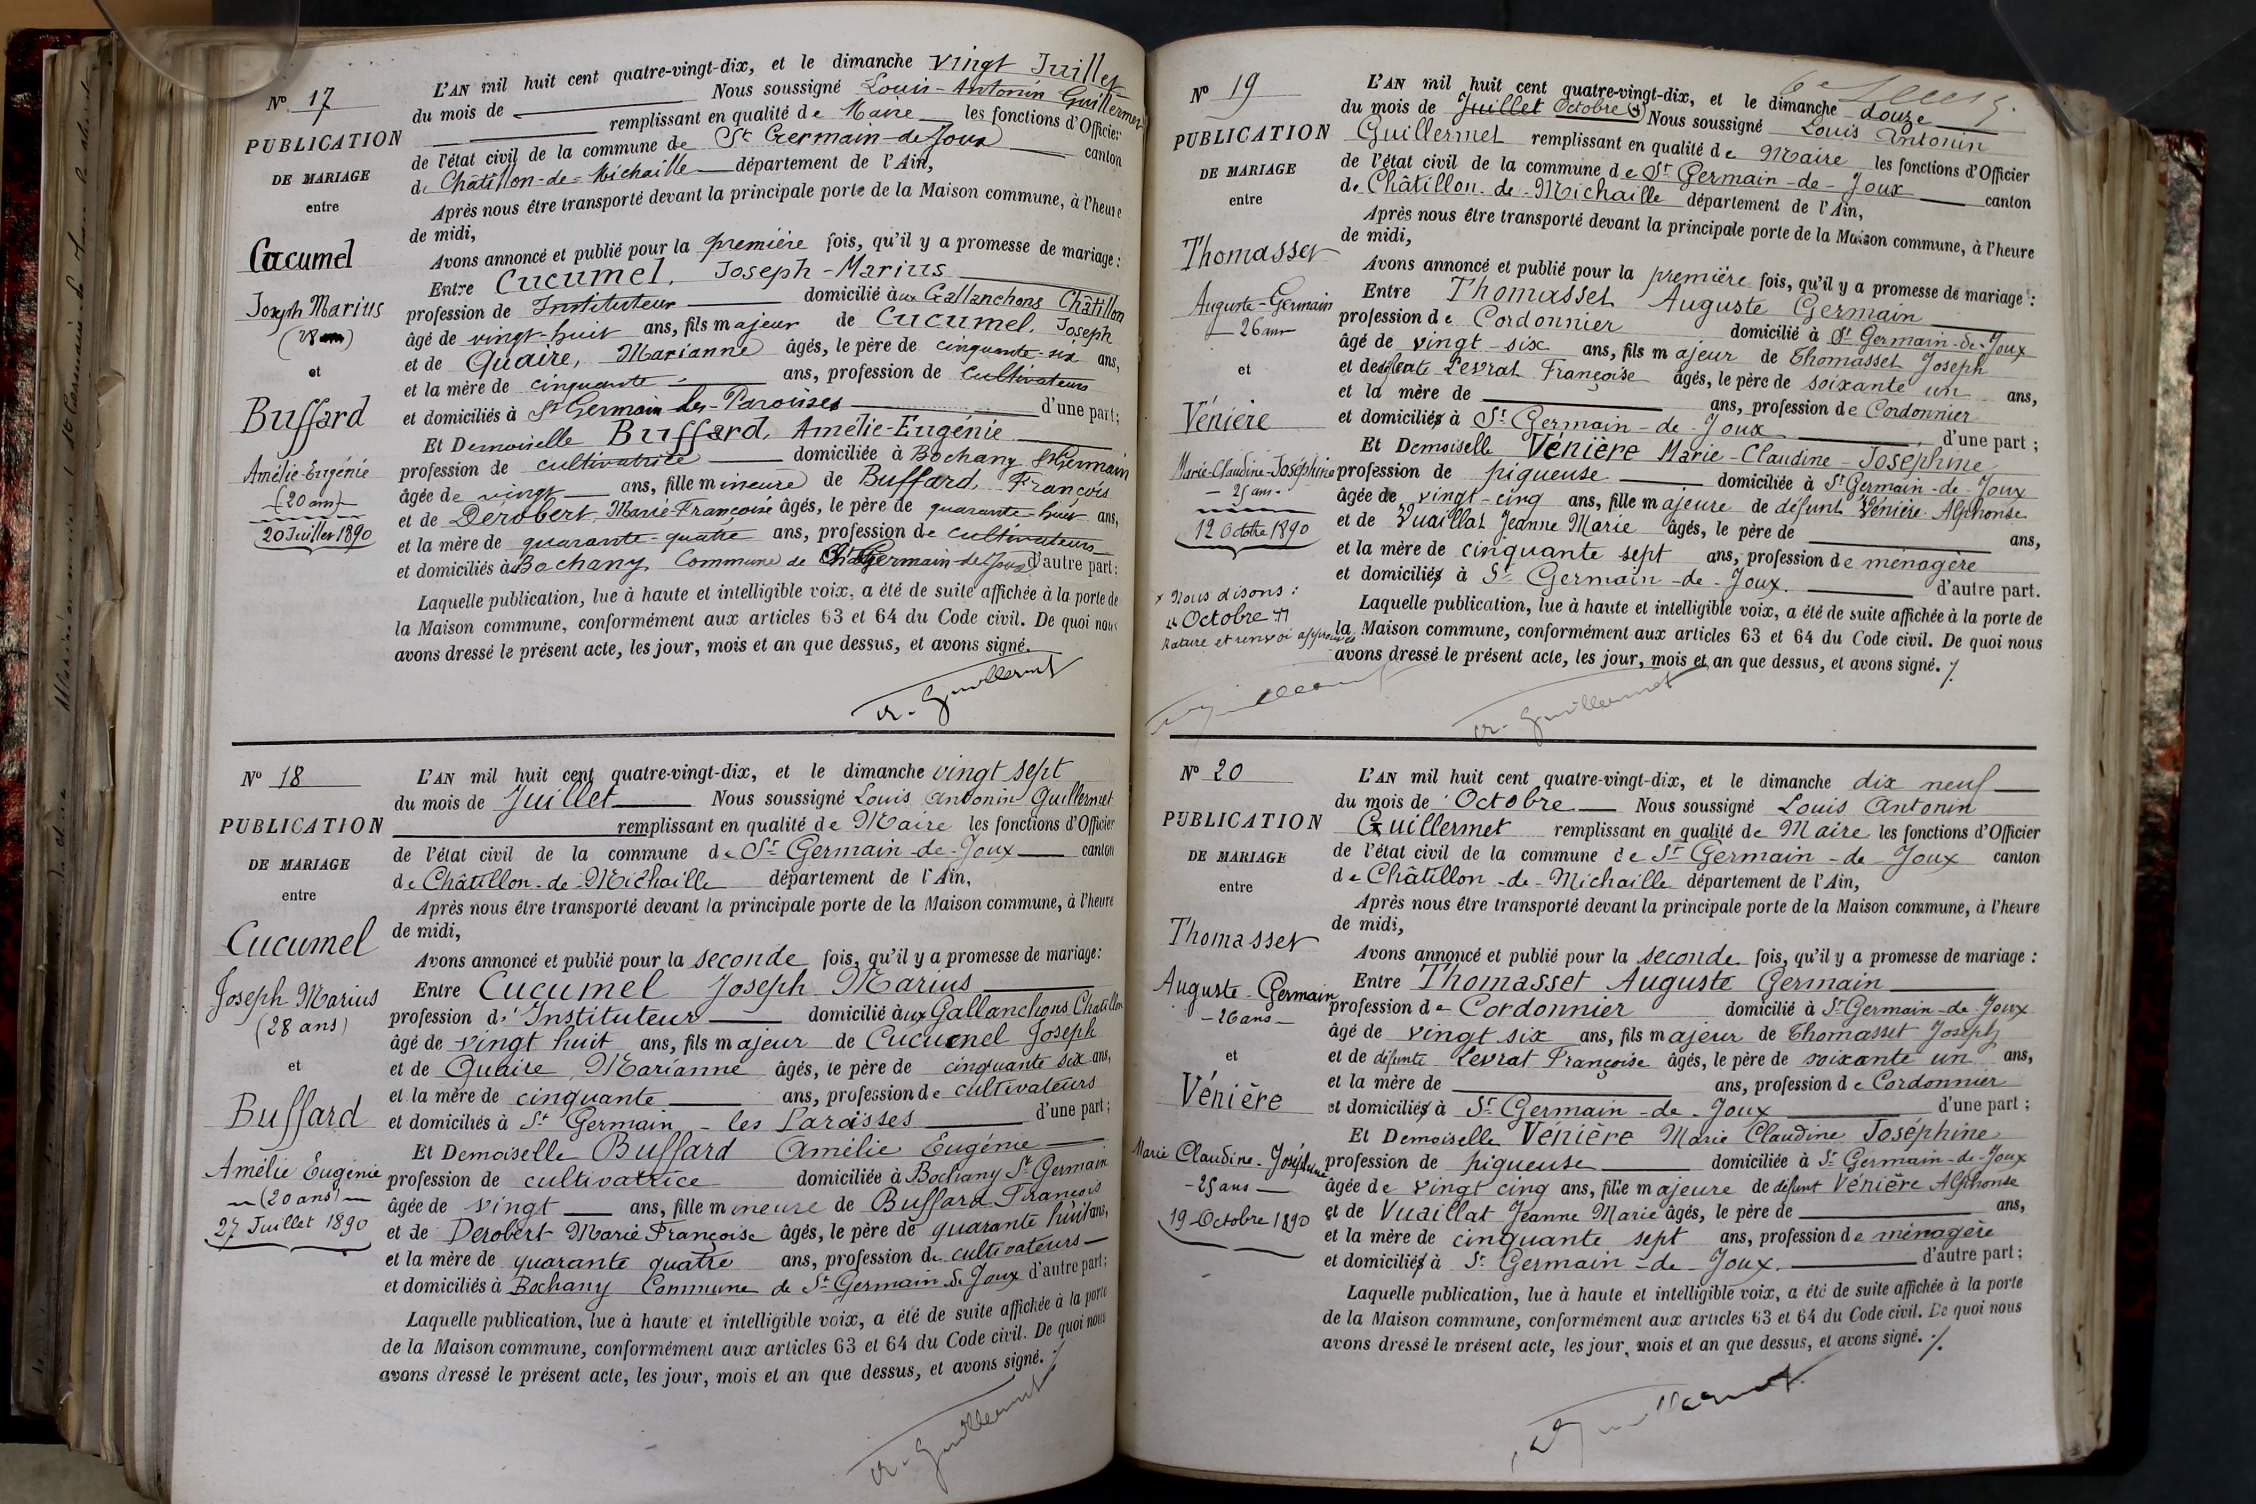 Nº 17
PUBLICATION
DE MARIAGE
entre
Cucumel
Joseph Marius
(28 ans)
et
Buffard
Amélie-Eugénie
(20 ans)
20 Juillet 1890
L'AN mil huit cent quatre-vingt-dix, et le dimanche vingt Juillet
du mois de Nous soussigné Louis-Antonin Guillermet
remplissant en qualité de Maire les fonctions d'Officier
de l'état civil de la commune de St Germain-de-Joux canton
de Châtillon-de-Michaille département de l'Ain,
Après nous être transporté devant la principale porte de la Maison commune, à l'heure
de midi,
Avons annoncé et publié pour la première fois, qu'il y a promesse de mariage :
Entre Cucumel, Joseph-Marius
profession de Instituteur domicilié aux Gallanchons Châtillon
âgé de vingt-huit ans, fils majeur de Cucumel, Joseph
et de Quaire, Marianne âgés, le père de cinquante-six ans,
et la mère de cinquante ans, profession de Cultivateurs
et domiciliés à St Germain-les-Paroisses d'une part;
Et Demoiselle Buffard, Amélie-Eugénie
profession de cultivatrice domiciliée à Bochany St Germain
âgée de vingt ans, fille mineure de Buffard, François
et de Derobert, Marie-Françoise âgés, le père de quarante-huit ans,
et la mère de quarante-quatre ans, profession de cultivateurs
et domiciliés à Bochany Commune de Germain-de-Joux d'autre part:
Laquelle publication, lue à haute et intelligible voix, a été de suite affichée à la porte de
la Maison commune, conformément aux articles 63 et 64 du Code civil. De quoi nous
avons dressé le présent acte, les jour, mois et an que dessus, et avons signé.
A. Guillermet
Nº 18
PUBLICATION
DE MARIAGE
entre
Cucumel
Joseph Marius
(28 ans)
et
Buffard
Amélie Eugénie
(20 ans)
27 Juillet 1890
L'AN mil huit cent quatre-vingt-dix, et le dimanche vingt sept
du mois de Juillet Nous soussigné Louis Antonin Guillermet
remplissant en qualité de Maire les fonctions d'Officier
de l'état civil de la commune de St Germain-de-Joux canton
de Châtillon-de-Michaille département de l'Ain,
Après nous être transporté devant la principale porte de la Maison commune, à l'heure
de midi,
Avons annoncé et publié pour la seconde fois, qu'il y a promesse de mariage:
Entre Cucumel Joseph Marius
profession d'Instituteur domicilié aux Gallanchons Chatillon
âgé de vingt huit ans, fils majeur de Cucumel Joseph
et de Quaire Marianne âgés, le père de cinquante six ans,
et la mère de cinquante ans, profession de cultivateurs
et domiciliés à St Germain-les Paroisses d'une part;
Et Demoiselle Buffard Amélie Eugénie
profession de cultivatrice domiciliée à Bochany St Germain
âgée de vingt ans, fille mineure de Buffard François
et de Derobert Marie Françoise âgés, le père de quarante huit ans,
et la mère de quarante quatre ans, profession de cultivateurs
et domiciliés à Bochany Commune de St Germain de Joux d'autre part;
Laquelle publication, lue à haute et intelligible voix, a été de suite affichée à la porte
de la Maison commune, conformément aux articles 63 et 64 du Code civil. De quoi nous
avons dressé le présent acte, les jour, mois et an que dessus, et avons signé.
A. Guillermet
Nº 19
PUBLICATION
DE MARIAGE
entre
Thomasset
Auguste-Germain
26 ans
et
Vénière
Marie-Claudine-Joséphine
- 25 ans -
12 Octobre 1890
x Nous disons :
" Octobre "
Rature et renvoi approuvés
L'AN mil huit cent quatre-vingt-dix, et le dimanche douze
du mois de Juillet Octobre Nous soussigné Louis Antonin
Guillermet remplissant en qualité de Maire les fonctions d'Officier
de l'état civil de la commune de St Germain-de-Joux canton
de Châtillon-de-Michaille département de l'Ain,
Après nous être transporté devant la principale porte de la Maison commune, à l'heure
de midi,
Avons annoncé et publié pour la première fois, qu'il y a promesse de mariage :
Entre Thomasset Auguste Germain
profession de Cordonnier domicilié à St Germain-de-Joux
âgé de vingt-six ans, fils majeur de Thomasset Joseph
et de défunte Levrat Françoise âgés, le père de soixante un ans,
et la mère de ans, profession de Cordonnier
et domiciliés à St Germain-de-Joux d'une part ;
Et Demoiselle Vénière Marie-Claudine-Joséphine
profession de piqueuse domiciliée à St Germain-de-Joux
âgée de vingt-cinq ans, fille majeure de défunt Vénière Alphonse
et de Vuaillat Jeanne Marie âgés, le père de ans,
et la mère de cinquante sept ans, profession de ménagère
et domiciliés à St Germain-de-Joux. d'autre part.
Laquelle publication, lue à haute et intelligible voix, a été de suite affichée à la porte de
la Maison commune, conformément aux articles 63 et 64 du Code civil. De quoi nous
avons dressé le présent acte, les jour, mois et an que dessus, et avons signé.
A. Guillermet
Nº 20
PUBLICATION
DE MARIAGE
entre
Thomasset
Auguste-Germain
- 26 ans -
et
Vénière
Marie Claudine-Joséphine
- 25 ans -
19 Octobre 1890
L'AN mil huit cent quatre-vingt-dix, et le dimanche dix neuf
du mois de Octobre Nous soussigné Louis Antonin
Guillermet remplissant en qualité de Maire les fonctions d'Officier
de l'état civil de la commune de St Germain-de-Joux canton
de Châtillon-de-Michaille département de l'Ain,
Après nous être transporté devant la principale porte de la Maison commune, à l'heure
de midi,
Avons annoncé et publié pour la seconde fois, qu'il y a promesse de mariage :
Entre Thomasset Auguste Germain
profession de Cordonnier domicilié à St Germain-de-Joux
âgé de vingt six ans, fils majeur de Thomasset Joseph
et de défunte Levrat Françoise âgés, le père de soixante un ans,
et la mère de ans, profession de Cordonnier
et domiciliés à St Germain-de-Joux d'une part ;
Et Demoiselle Vénière Marie Claudine Joséphine
profession de piqueuse domiciliée à St Germain-de-Joux
âgée de vingt cinq ans, fille majeure de défunt Vénière Alphonse
et de Vuaillat Jeanne Marie âgés, le père de ans,
et la mère de cinquante sept ans, profession de ménagère
et domiciliés à St Germain-de-Joux. d'autre part;
Laquelle publication, lue à haute et intelligible voix, a été de suite affichée à la porte
de la Maison commune, conformément aux articles 63 et 64 du Code civil. De quoi nous
avons dressé le présent acte, les jour, mois et an que dessus, et avons signé.
A Guillermet